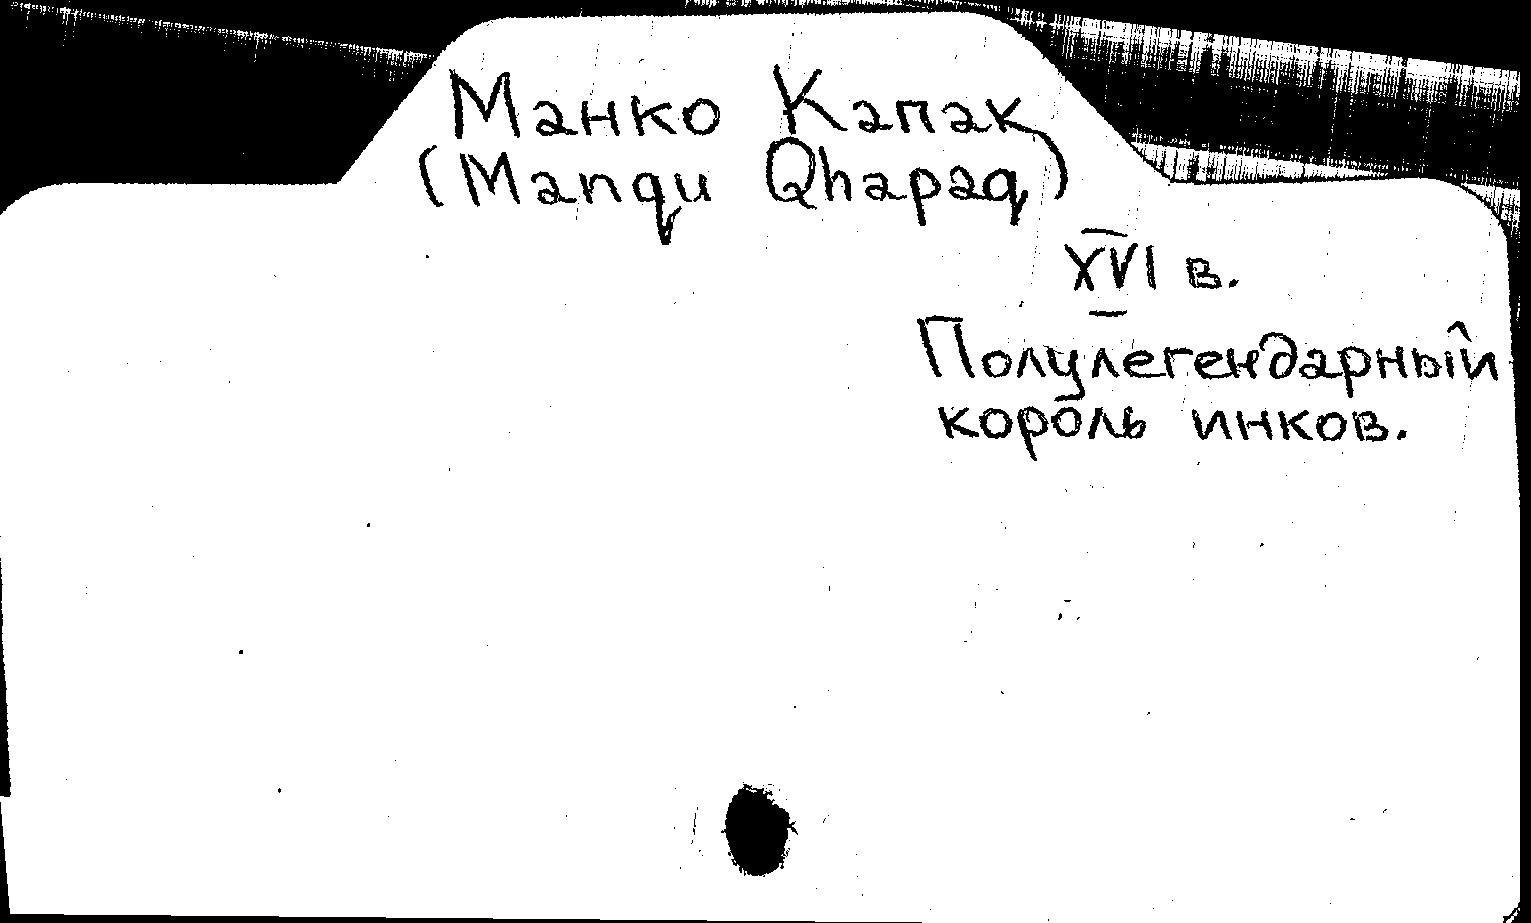 Манко Капак
(Manqu Qhapaq)
XVI в.
Полулегендарный
король инков.